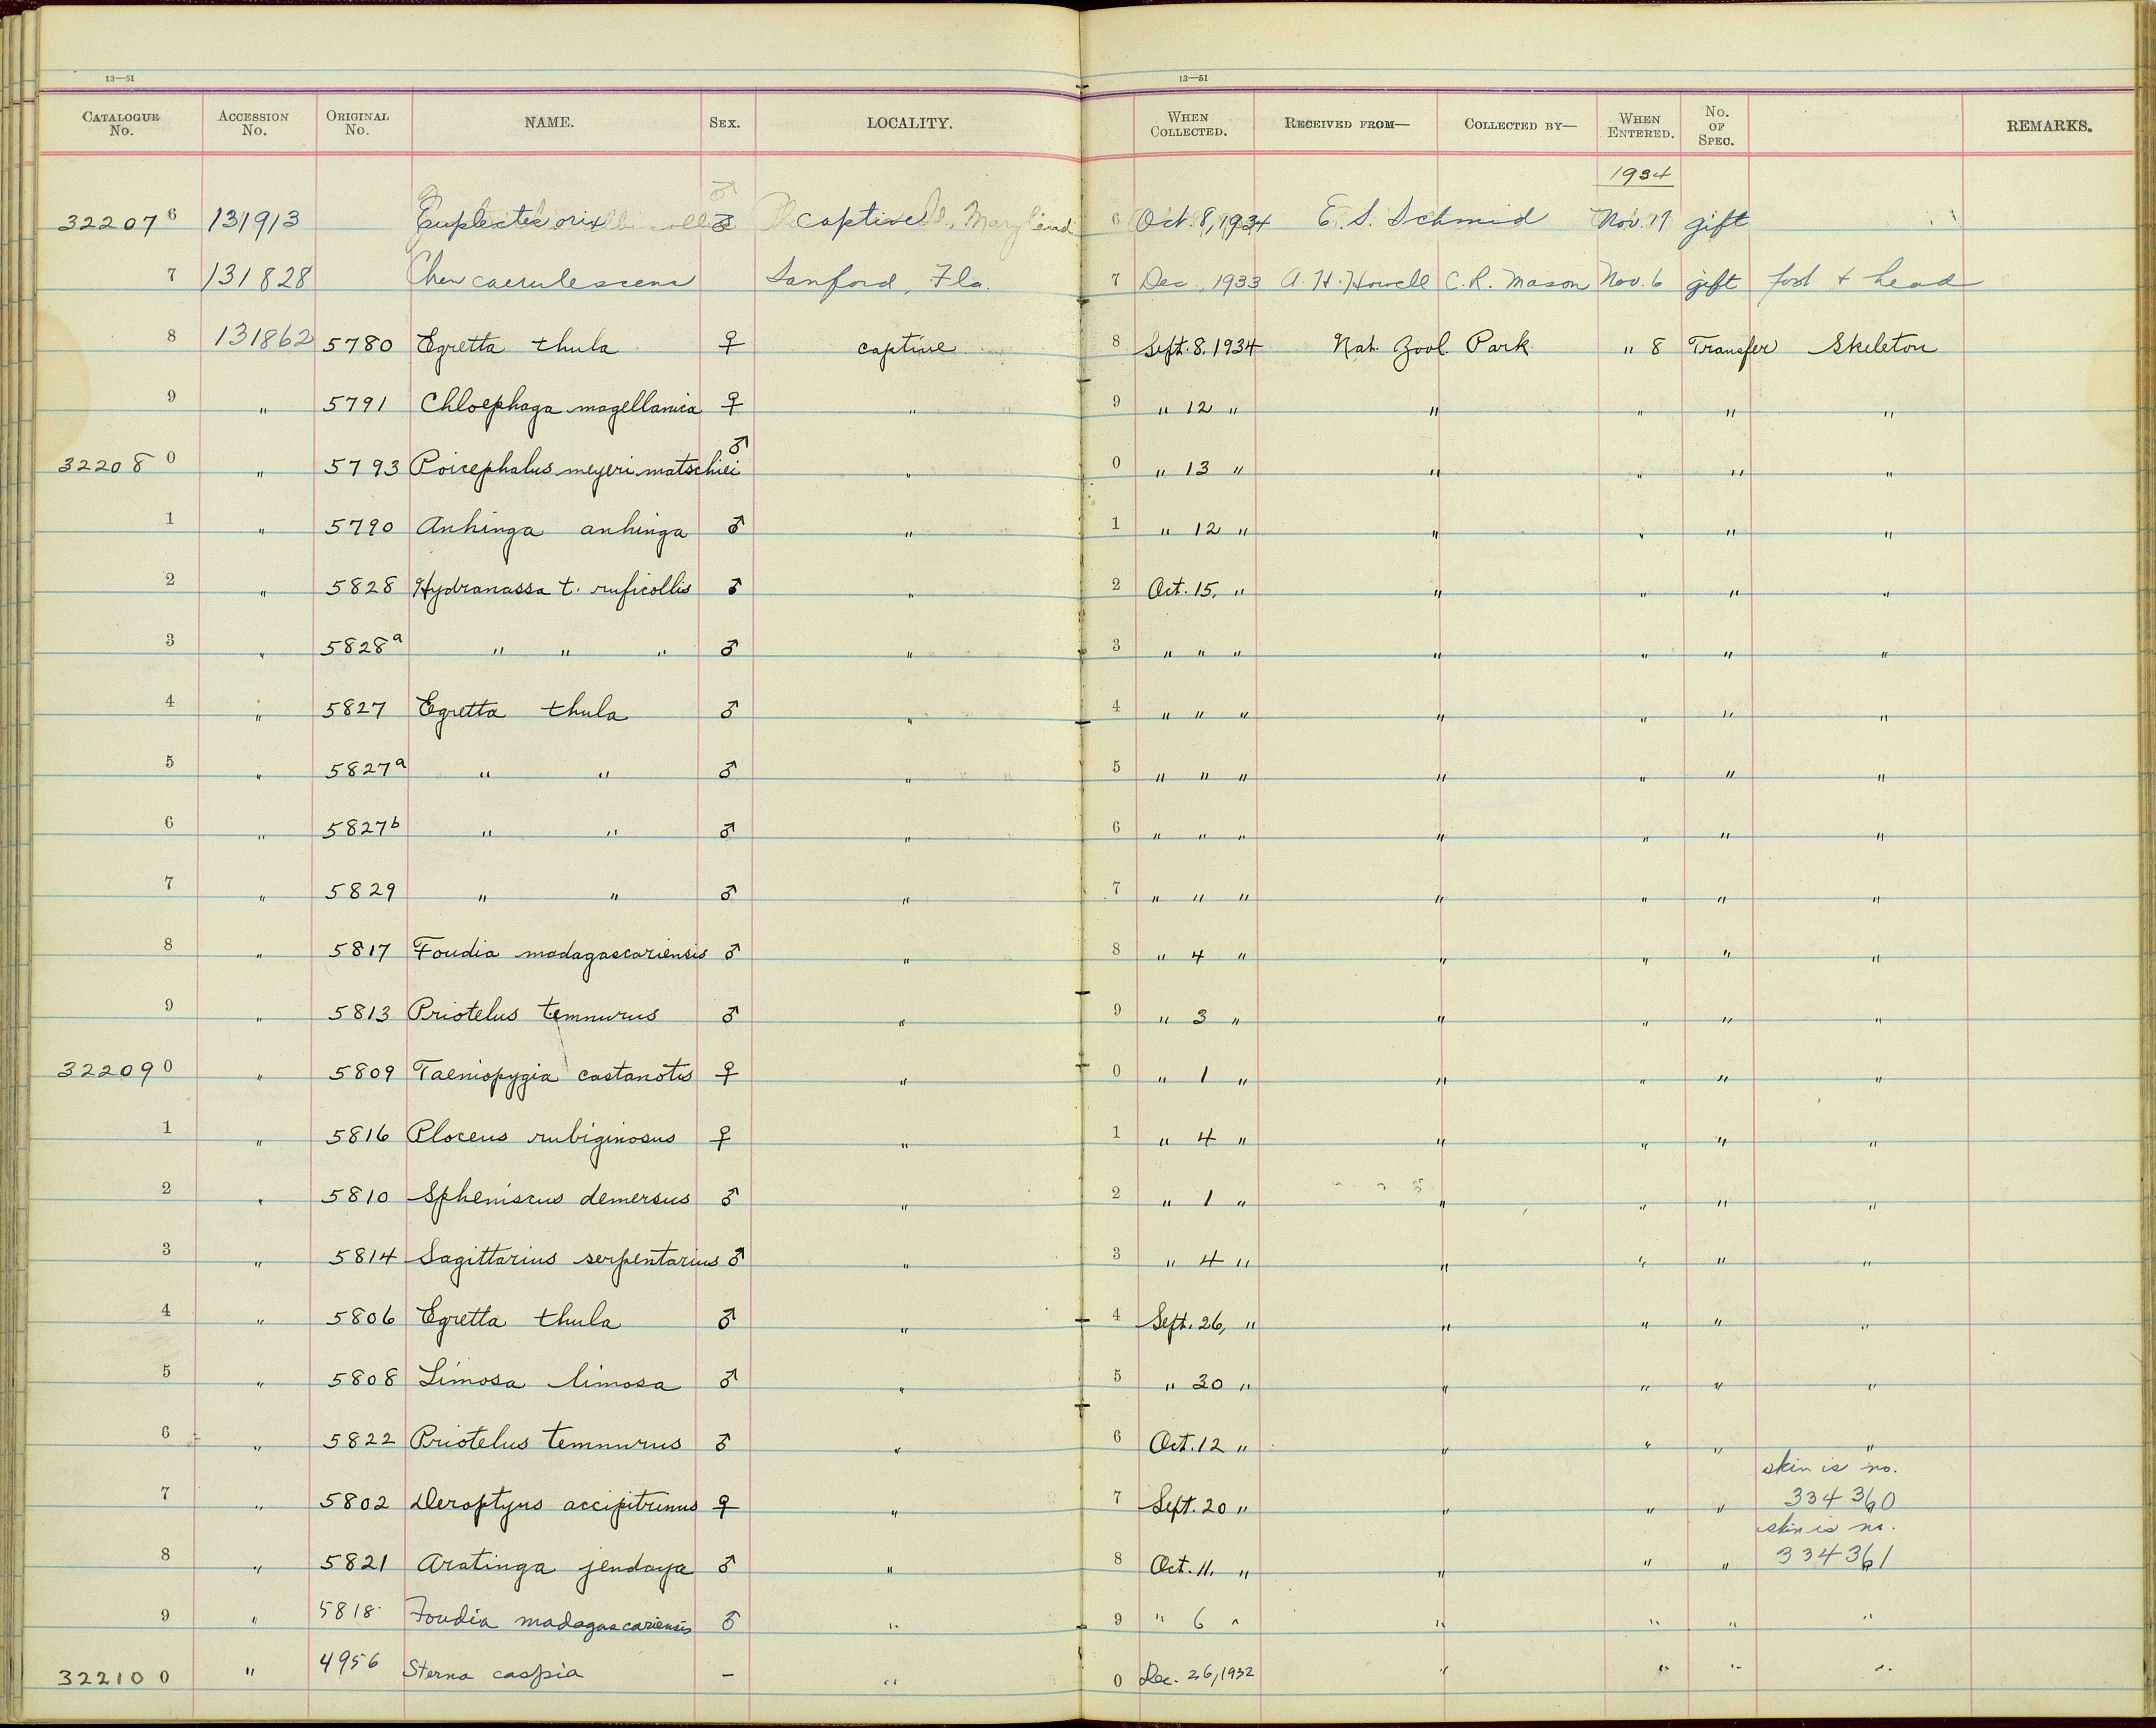 13—51 13—51
CATALOGUE No. ACCESSION No. ORIGINAL No. NAME. SEX. LOCALITY. WHEN COLLECTED. RECEIVED FROM— COLLECTED BY— WHEN ENTERED. No. OF SPEC. REMARKS.
1934
32207 6 131913 Euplectes orix ♂ captive 6 Oct. 8, 1934 E. S. Schmid Nov. 19 gift
7 131828 Chen caerulescens Sanford, Fla. 7 Dec., 1933 A. H. Howell C. R. Mason Nov. 6 gift foot + head
8 131862 5780 Egretta thula ♀ captive 8 Sept. 8, 1934 Nat. Zool. Park " 8 Transfer Skeleton
9 " 5791 Chloephaga magellanica ♀ " 9 " 12 " " " " "
32208 0 " 5793 Poicephalus meyeri matschiei ♂ " 0 " 13 " " " " "
1 " 5790 Anhinga anhinga ♂ " 1 " 12 " " " " "
2 " 5828 Hydranassa t. ruficollis ♂ " 2 Oct. 15, " " " " "
3 " 5828a " " " ♂ " 3 " " " " " " "
4 " 5827 Egretta thula ♂ " 4 " " " " " " "
5 " 5827a " " ♂ " 5 " " " " " " "
6 " 5827b " " ♂ " 6 " " " " " " "
7 " 5829 " " ♂ " 7 " " " " " " "
8 " 5817 Foudia madagascariensis ♂ " 8 " 4 " " " " "
9 " 5813 Priotelus temnurus ♂ " 9 " 3 " " " " "
32209 0 " 5809 Taeniopygia castanotis ♀ " 0 " 1 " " " " "
1 " 5816 Ploceus rubiginosus ♀ " 1 " 4 " " " " "
2 " 5810 Spheniscus demersus ♂ " 2 " 1 " " " " "
3 " 5814 Sagittarius serpentarius ♂ " 3 " 4 " " " " "
4 " 5806 Egretta thula ♂ " 4 Sept. 26, " " " " "
5 " 5808 Limosa limosa ♂ " 5 " 30 " " " " "
6 " 5822 Priotelus temnurus ♂ " 6 Oct. 12 " " " " "
7 " 5802 Deroptyus accipitrinus ♀ " 7 Sept. 20 " " " " skin is no. 334360
8 " 5821 Aratinga jendaya ♂ " 8 Oct. 11. " " " " skin is no. 334361
9 " 5818 Foudia madagascariensis ♂ " 9 " 6 " " " " "
32210 0 " 4956 Sterna caspia – " 0 Dec. 26, 1932 " " " "